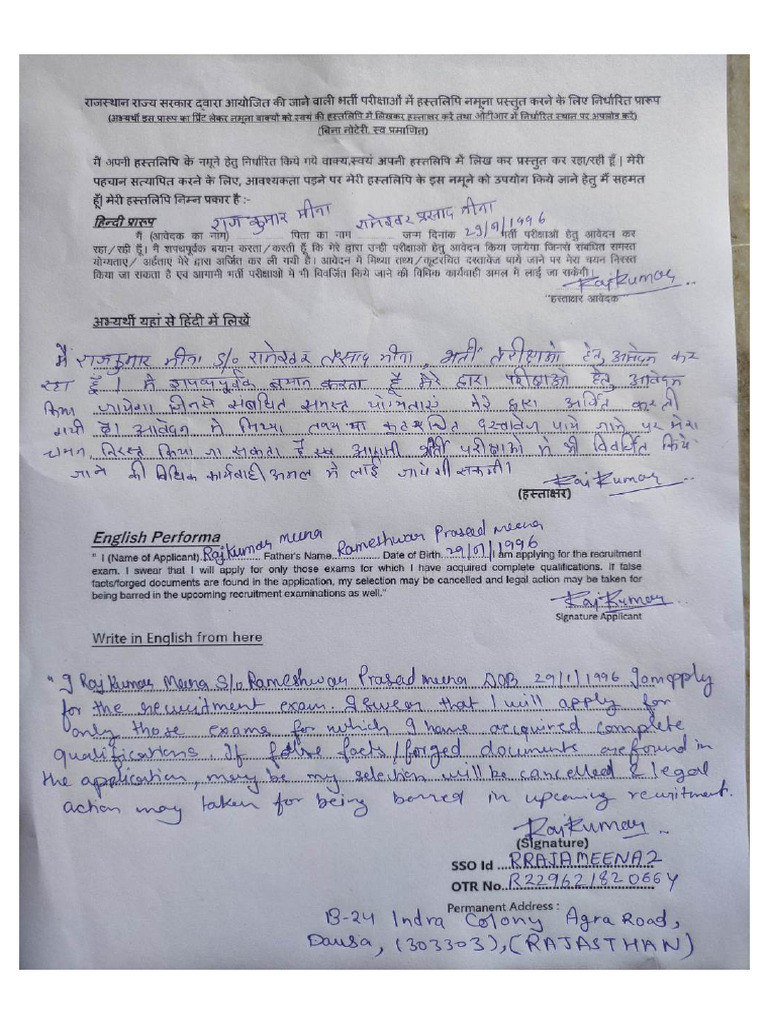 राजस्थान राज्य सरकार द्वारा आयोजित की जाने वाली भर्ती परीक्षाओं में हस्तलिपि नमूना प्रस्तुत करने के लिए निर्धारित प्रारूप
(अभ्यर्थी इस प्रारूप का प्रिंट लेकर नमूना वाक्यो को स्वयं की हस्तलिपि में लिखकर हस्ताक्षर करें तथा ओटीआर में निर्धारित स्थान पर अपलोड करें)
(बिना नोटेरी, स्व प्रमाणित)
मैं अपनी हस्तलिपि के नमूने हेतु निर्धारित किये गये वाक्य,स्वयं अपनी हस्तलिपि में लिख कर प्रस्तुत कर रहा/रही हूँ | मेरी
पहचान सत्यापित करने के लिए, आवश्यकता पड़ने पर मेरी हस्तलिपि के इस नमूने को उपयोग किये जाने हेतु मैं सहमत
हूँ| मेरी हस्तलिपि निम्न प्रकार है :-
हिन्दी प्रारूप राज कुमार मीना रामेश्वर प्रसाद मीना 29/1/1996
मैं (आवेदक का नाम) पिता का नाम जन्म दिनांक भर्ती परीक्षाओ हेतु आवेदन कर
रहा/रही हूँ। मैं शपथपूर्वक बयान करता/करती हूँ कि मेरे द्वारा उन्ही परीक्षाओ हेतु आवेदन किया जायेगा जिनसे संबंधित समस्त
योग्यताए/ अर्हताए मेरे द्वारा अर्जित कर ली गयी है। आवेदन में मिथ्या तथ्य/कूटरचित दस्तावेज पाये जाने पर मेरा चयन निरस्त
किया जा सकता है एवं आगामी भर्ती परीक्षाओं में भी विवर्जित किये जाने की विधिक कार्यवाही अमल में लाई जा सकेगी।
RajKumar
"हस्ताक्षर आवेदक"
अभ्यर्थी यहां से हिंदी में लिखें
मैं राजकुमार मीना S/o रामेश्वर प्रसाद मीना, भर्ती परीक्षाओ हेतु आवेदन कर
रहा हूँ। मैं शपथपूर्वक बयान करता हूँ मेरे द्वारा परीक्षाओ हेतु आवेदन
किया जायेगा जिनसे संबधित समस्त योग्यताएं मेरे द्वारा अर्जित करली
गयी है। आवेदन में मिथ्या तथ्य या कूटरचित दस्तावेज पाये जाने पर मेरा
चयन निरस्त किया जा सकता है एवं आगामी भर्ती परीक्षाओ में भी विवर्जित किये
जाने की विधिक कार्यवाही अमल में लाई जायेगी सकेगी।
RajKumar
(हस्ताक्षर)
English Performa
" I (Name of Applicant) Rajkumar meena Father's Name Rameshwar Prasad meena Date of Birth 29/01/1996 I am applying for the recruitment
exam. I swear that I will apply for only those exams for which I have acquired complete qualifications. If false
facts/forged documents are found in the application, my selection may be cancelled and legal action may be taken for
being barred in the upcoming recruitment examinations as well."
RajKumar
Signature Applicant
Write in English from here
"I RajKumar Meena S/o Rameshwar Prasad meena DOB 29/1/1996 Iam apply
for the recruitment exam. I swear that I will apply for
only those exams for which I have acquired complete
qualifications. If false facts/forged documents are found in
the application, may be my selection will be cancelled & legal
action may taken for being barred in upcoming recruitment.
RajKumar
(Signature)
SSO Id RRAJAMEENA2
OTR No. R22962182066Y
Permanent Address :
B-24 Indra Colony Agra Road,
Dausa, (303303), (RAJASTHAN)